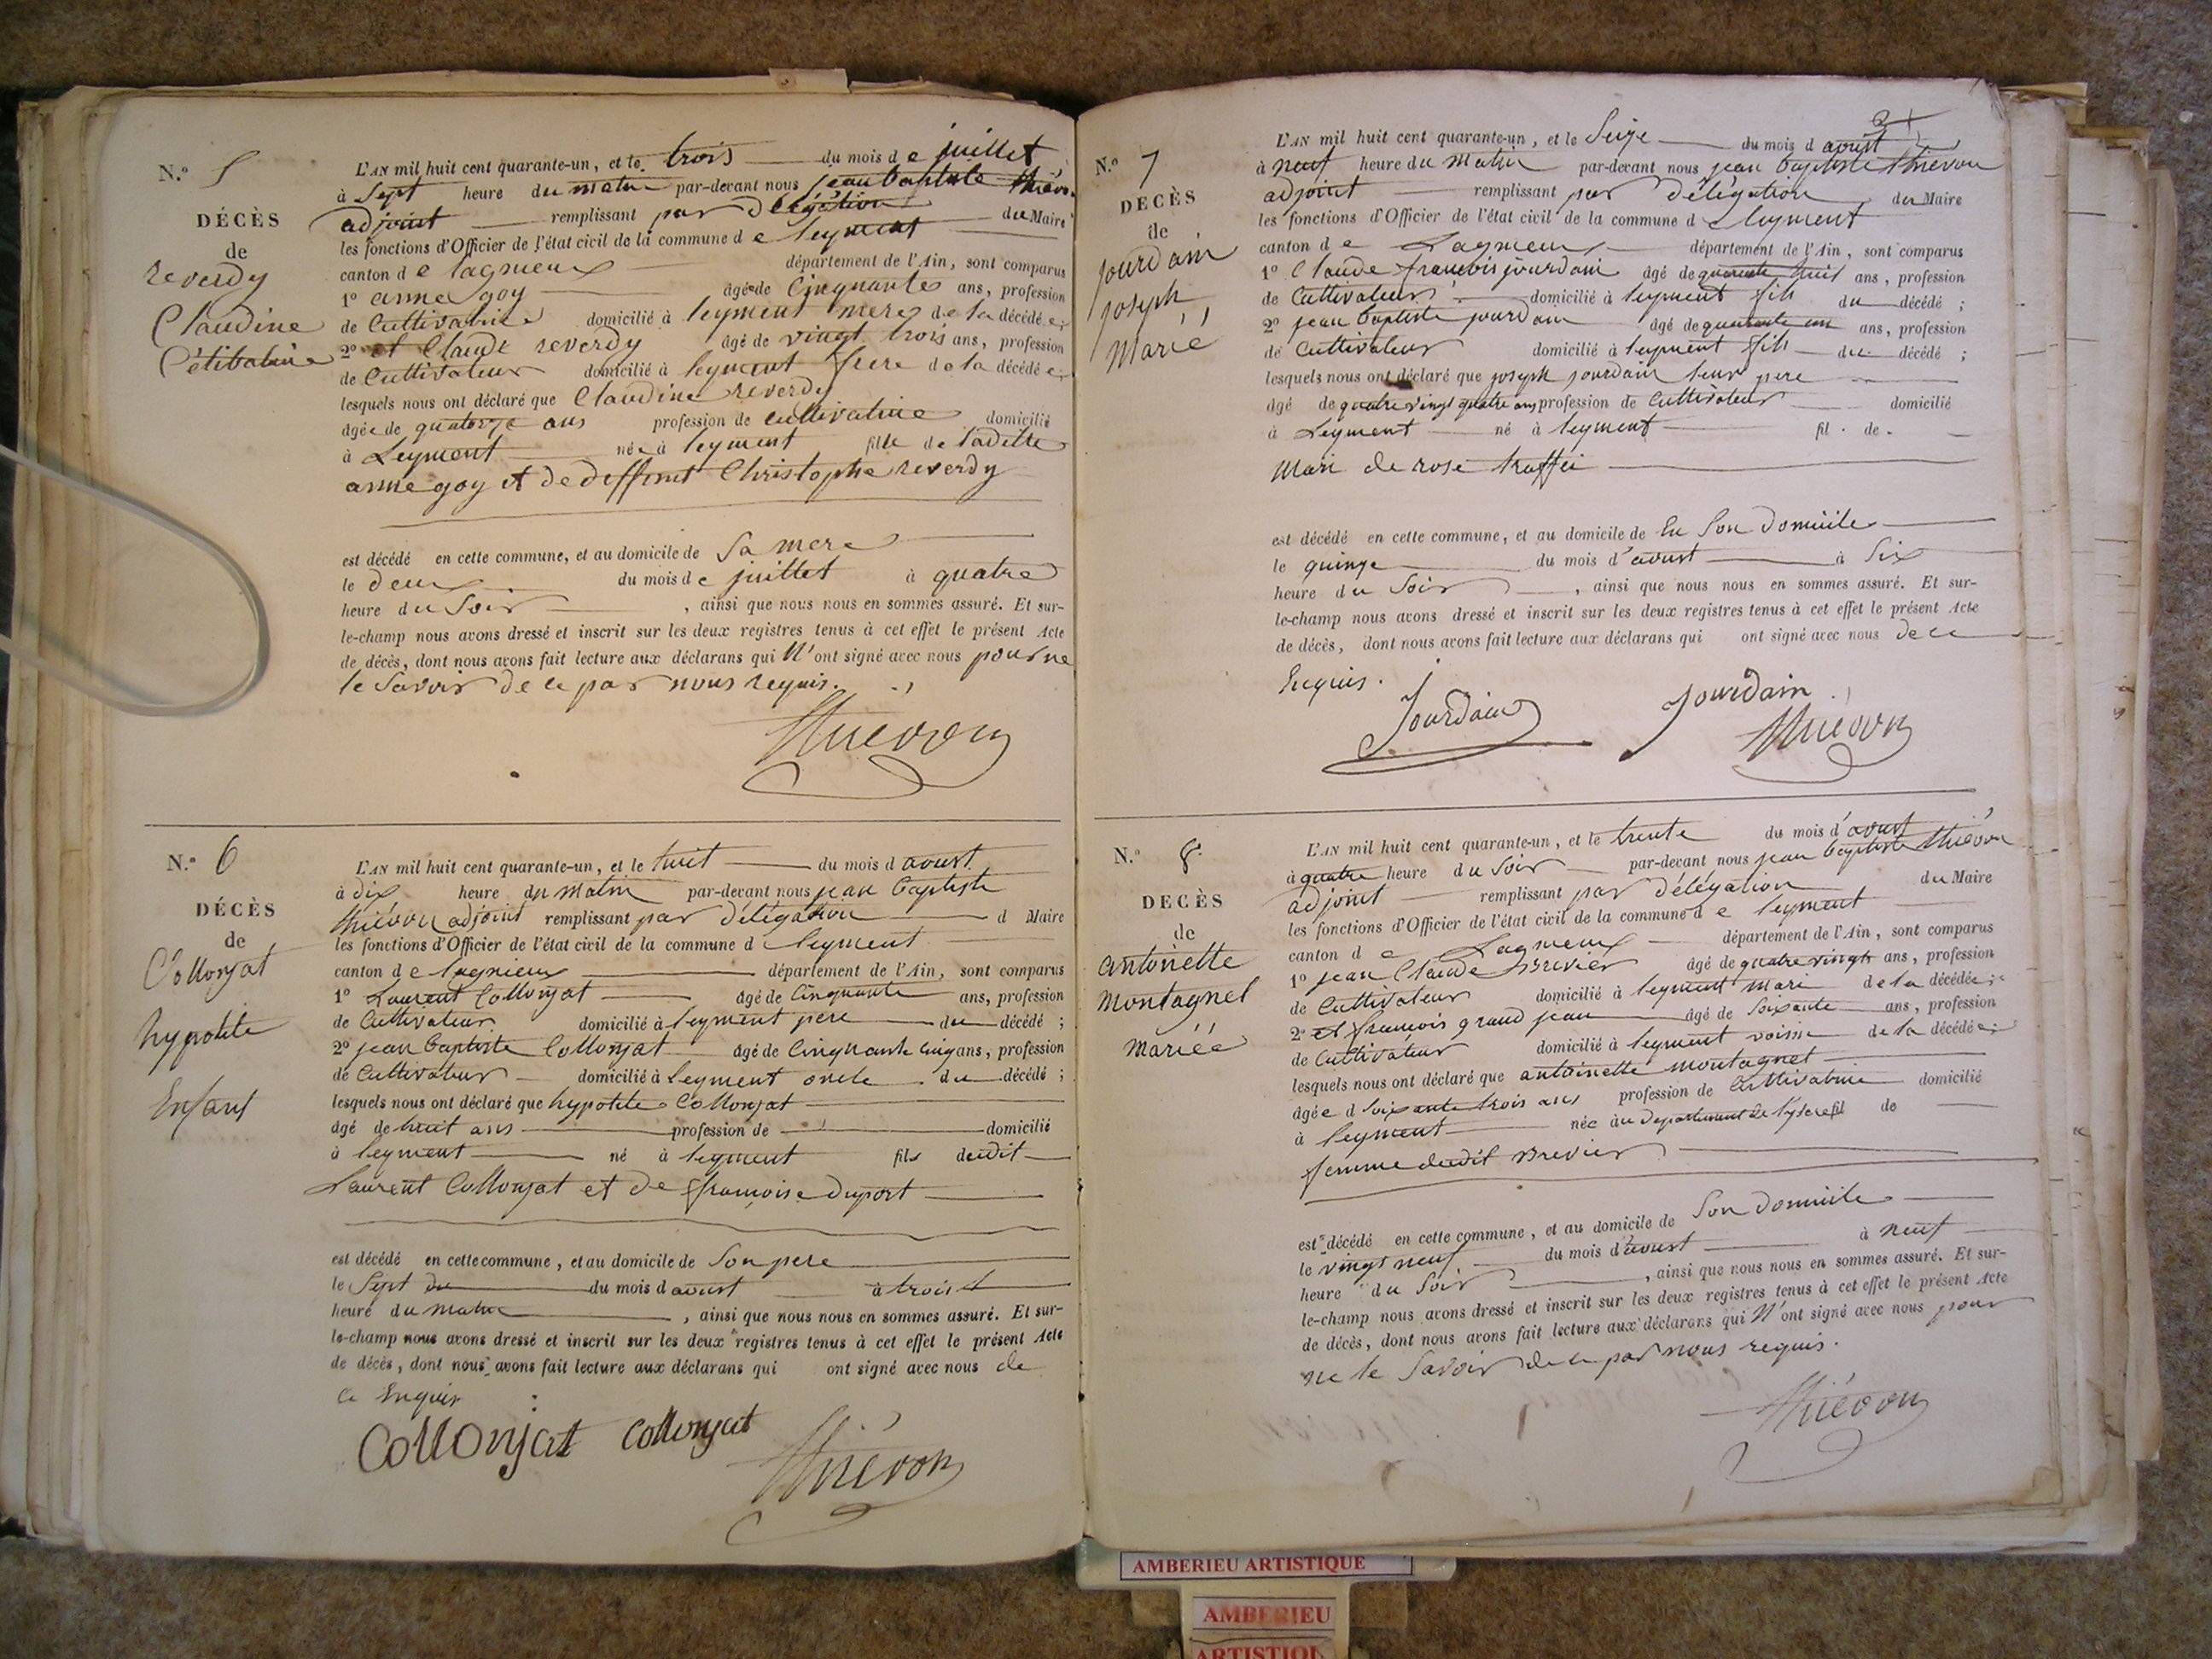 N.° 5
DÉCÈS
de
reverdy
Claudine
Célibataire
L'AN mil huit cent quarante-un, et le trois du mois de juillet
à Sept heure du matin par-devant nous jean baptiste thiévon
adjoint remplissant par délégation du Maire
les fonctions d'Officier de l'état civil de la commune de leyment
canton de lagnieux département de l'Ain, sont comparus
1° anne goy âgée de Cinquante ans, profession
de Cultivatrice domicilié à leyment mere de la décédée;
2° et Claude reverdy âgé de vingt trois ans, profession
de Cultivateur domicilié à leyment frere de la décédée;
lesquels nous ont déclaré que Claudine reverdy
âgée de quatorze ans profession de cultivatrice domicilié
à Leyment née à leyment fille de laditte
anne goy et de deffunt Christophe reverdy
est décédé en cette commune, et au domicile de Sa mere
le deux du mois de juillet à quatre
heure du Soir, ainsi que nous nous en sommes assuré. Et sur-
le-champ nous avons dressé et inscrit sur les deux registres tenus à cet effet le présent Acte
de décès, dont nous avons fait lecture aux déclarans qui N'ont signé avec nous pour ne
le Savoir de ce par nous requis.
Thiévon
N.° 6
DÉCÈS
de
Collonjat
hypolite
Enfant
L'AN mil huit cent quarante-un, et le huit du mois d aoust
à dix heure du matin par-devant nous jean baptiste
thiévon adjoint remplissant par délégation d Maire
les fonctions d'Officier de l'état civil de la commune d leyment
canton de lagnieux département de l'Ain, sont comparus
1° Laurent Collonjat âgé de Cinquante ans, profession
de Cultivateur domicilié à leyment pere du décédé;
2° jean baptiste Collonjat âgé de Cinquante Cinq ans, profession
de Cultivateur domicilié à Leyment oncle du décédé;
lesquels nous ont déclaré que hypolite Collonjat
âgé de huit ans profession de domicilié
à leyment né à leyment fils dudit
Laurent Collonjat et de françoise Duport
est décédé en cette commune, et au domicile de Son pere
le Sept du du mois d aoust à trois
heure du matin, ainsi que nous nous en sommes assuré. Et sur-
le-champ nous avons dressé et inscrit sur les deux registres tenus à cet effet le présent Acte
de décès, dont nous avons fait lecture aux déclarans qui ont signé avec nous de
ce Enquis
Collonjat Collonjat
Thiévon
N.° 7
DÉCÈS
de
jourdain
joseph
Marié
L'AN mil huit cent quarante-un, et le Seize du mois d aoust
à neuf heure du Matin par-devant nous jean baptiste thiévon
adjoint remplissant par délégation du Maire
les fonctions d'Officier de l'état civil de la commune de leyment
canton de Lagnieux département de l'Ain, sont comparus
1° Claude françois jourdain âgé de quarante huit ans, profession
de Cultivateur domicilié à leyment fils du décédé;
2° jean baptiste jourdain âgé de quarante un ans, profession
de Cultivateur domicilié à leyment fils du décédé;
lesquels nous ont déclaré que joseph jourdain leur pere
âgé de quatre vingt quatre ans profession de Cultivateur domicilié
à Leyment né à leyment fil de
Mari de rose truffei
est décédé en cette commune, et au domicile de En Son Domicile
le quinze du mois d'aoust à Six
heure du Soir, ainsi que nous nous en sommes assuré. Et sur-
le-champ nous avons dressé et inscrit sur les deux registres tenus à cet effet le présent Acte
de décès, dont nous avons fait lecture aux déclarans qui ont signé avec nous de ce
Enquis.
Jourdain Jourdain
Thiévon
N.° 8
DÉCÈS
de
antoinette
montagnel
Mariée
L'AN mil huit cent quarante-un, et le trente du mois d'aoust
à quatre heure du Soir par-devant nous jean baptiste thiévon
adjoint remplissant par délégation du Maire
les fonctions d'Officier de l'état civil de la commune de leyment
canton de Lagnieux département de l'Ain, sont comparus
1° jean Claude Brevier âgé de quatre vingts ans, profession
de Cultivateur domicilié à leyment mari de la décédée;
2° et françois grand jean âgé de Soixante ans, profession
de Cultivateur domicilié à leyment voisin de la décédée;
lesquels nous ont déclaré que antoinette montagnel
âgée d Soixante trois ans profession de Cultivatrice domicilié
à leyment née au Département de l'ysere fil de
femme dudit Brevier
est décédé en cette commune, et au domicile de Son Domicile
le vingt neuf du mois d'aoust à neuf
heure du Soir, ainsi que nous nous en sommes assuré. Et sur-
le-champ nous avons dressé et inscrit sur les deux registres tenus à cet effet le présent Acte
de décès, dont nous avons fait lecture aux déclarans qui N'ont signé avec nous pour
ne le Savoir de ce par nous requis.
Thiévon
AMBERIEU ARTISTIQUE
AMBERIEU
ARTISTIQ